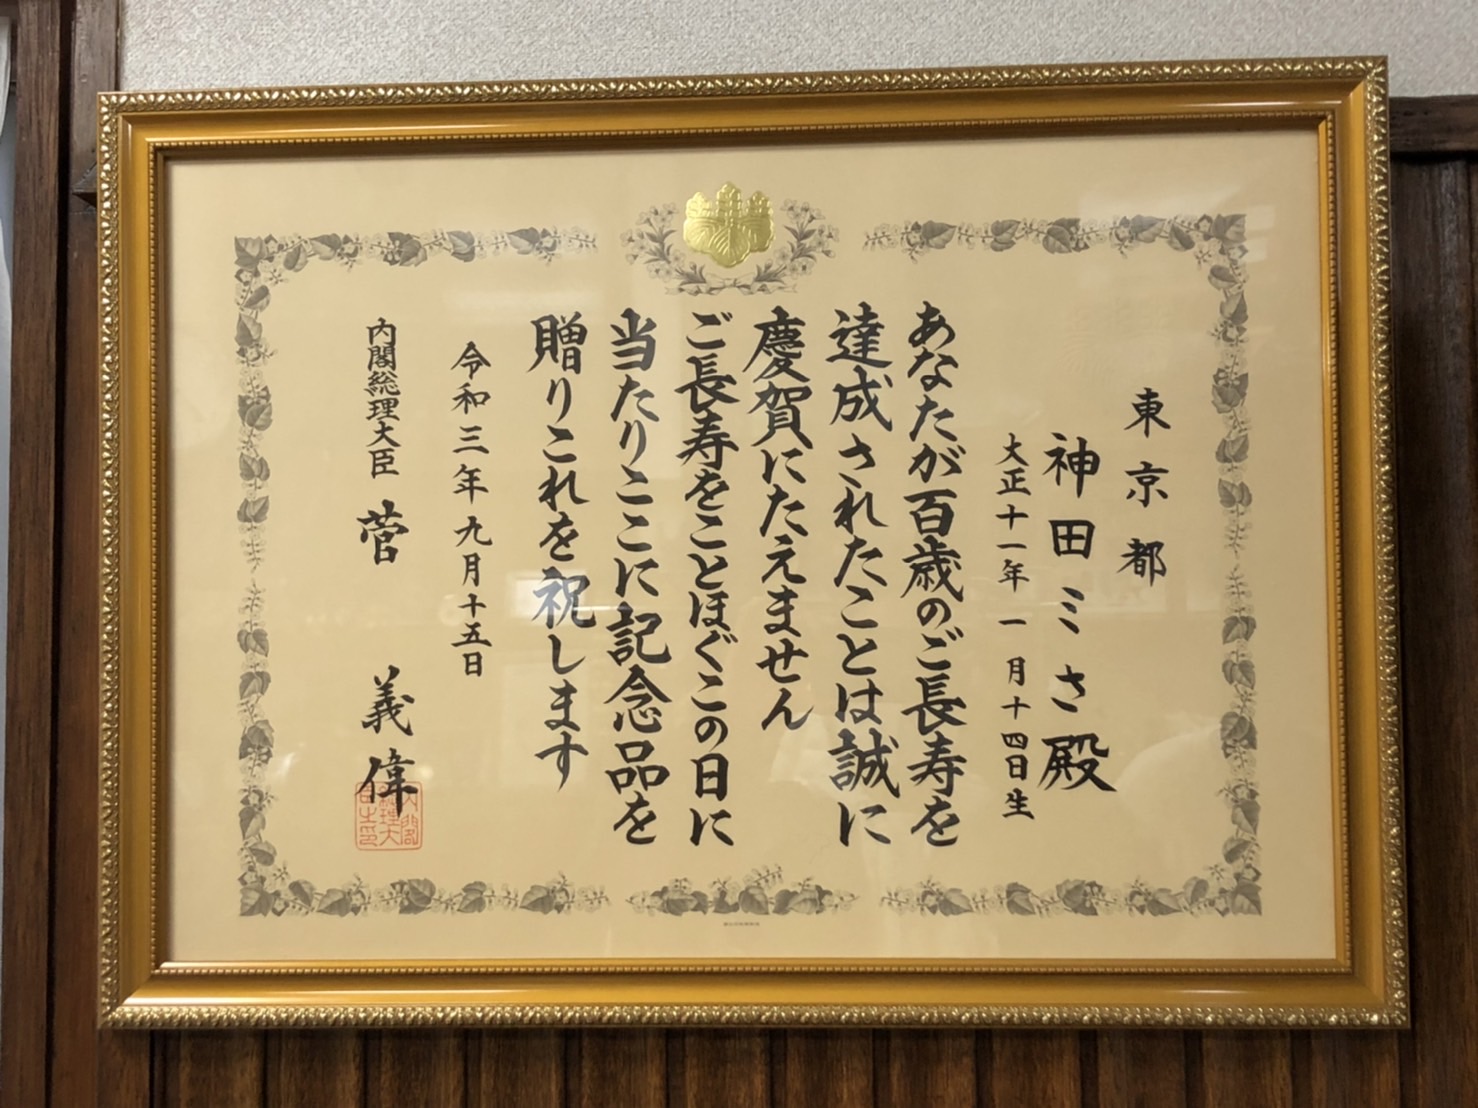 東京都
神田ミさ殿
大正十一年一月十四日生
あなたが百歳のご長寿を
達成されたことは誠に
慶賀にたえません
ご長寿をことほぐこの日に
当たりここに記念品を
贈りこれを祝します
令和三年九月十五日
内閣総理大臣 菅 義偉
内閣総理大臣之印